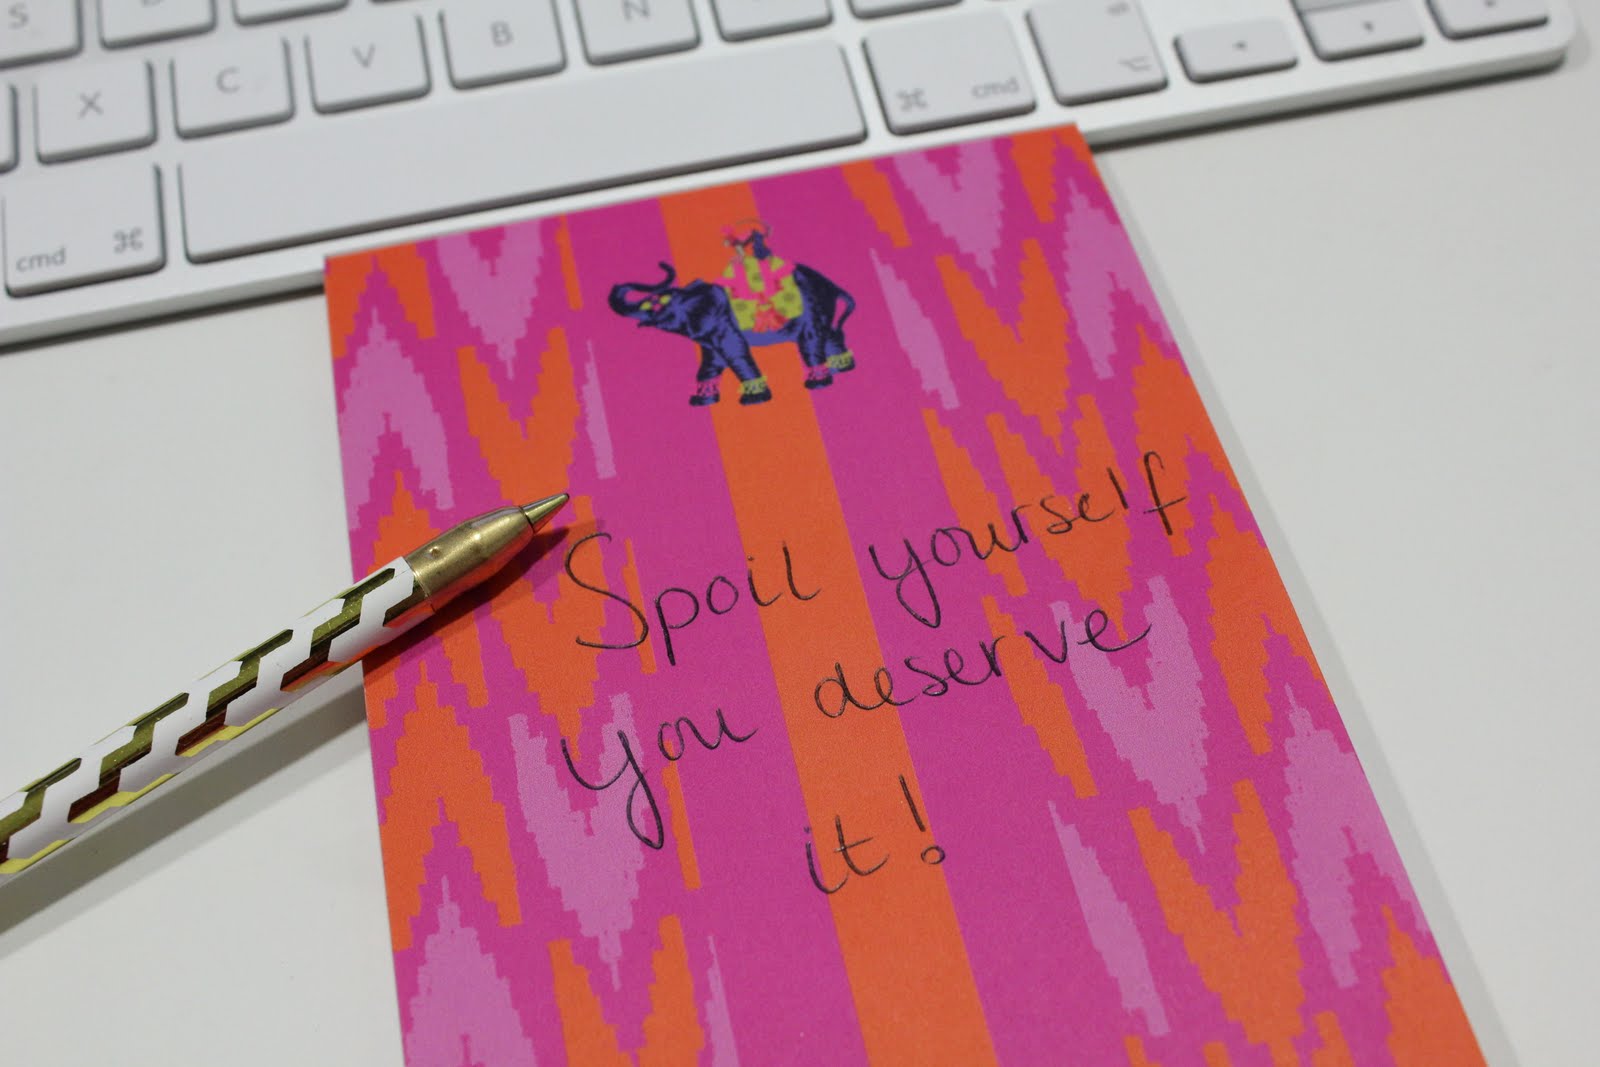 S
N
X C V B
cmd ⌘
⌘ cmd
⌥
Spoil yourself
you deserve
it!